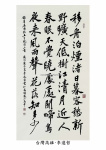 移舟泊煙渚日暮客愁新
野曠天低樹江清月近人
春眠不覺曉處處聞啼鳥
夜來風雨聲花落知多少
台灣高雄·李